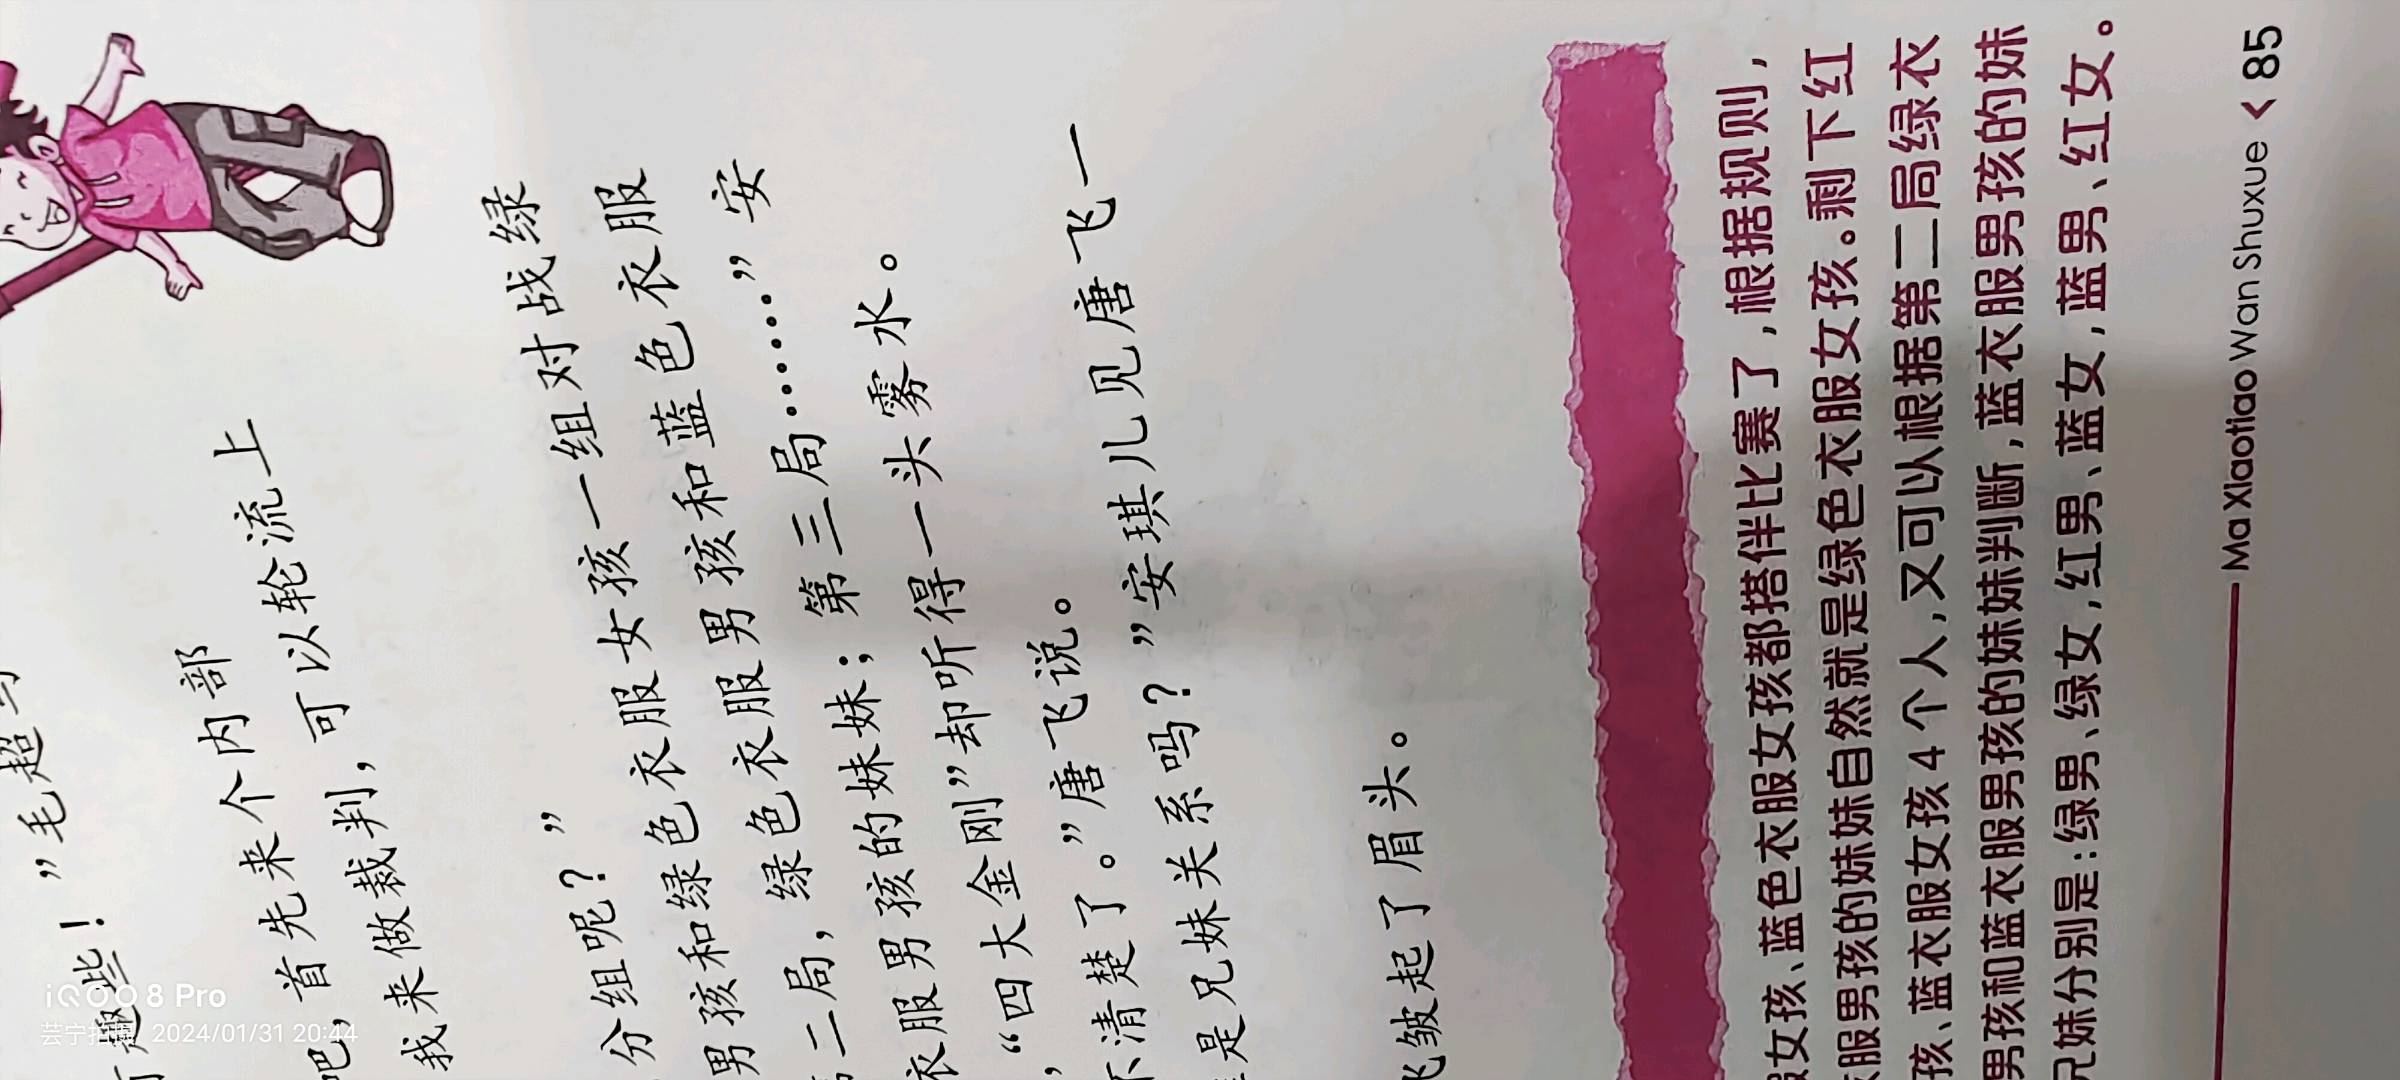 ”毛超
有趣些！
个内部
吧，首先来
我来做裁判，可以轮流上
分组呢？”
男孩和绿色衣服女孩一组对战绿
第二局，绿色衣服男孩和蓝色衣服
衣服男孩的妹妹；第三局……”安
，“四大金刚”却听得一头雾水。
不清楚了。”唐飞说。
是兄妹关系吗？”安琪儿见唐飞一
飞皱起了眉头。
服女孩、蓝色衣服女孩都搭伴比赛了，根据规则，
衣服男孩的妹妹自然就是绿色衣服女孩。剩下红
孩、蓝衣服女孩4个人，又可以根据第二局绿衣
男孩和蓝衣服男孩的妹妹判断，蓝衣服男孩的妹
兄妹分别是：绿男、绿女，红男、蓝女，蓝男、红女。
Ma Xiaotiao Wan Shuxue < 85
iQOO 8 Pro
2024/01/31 20:44